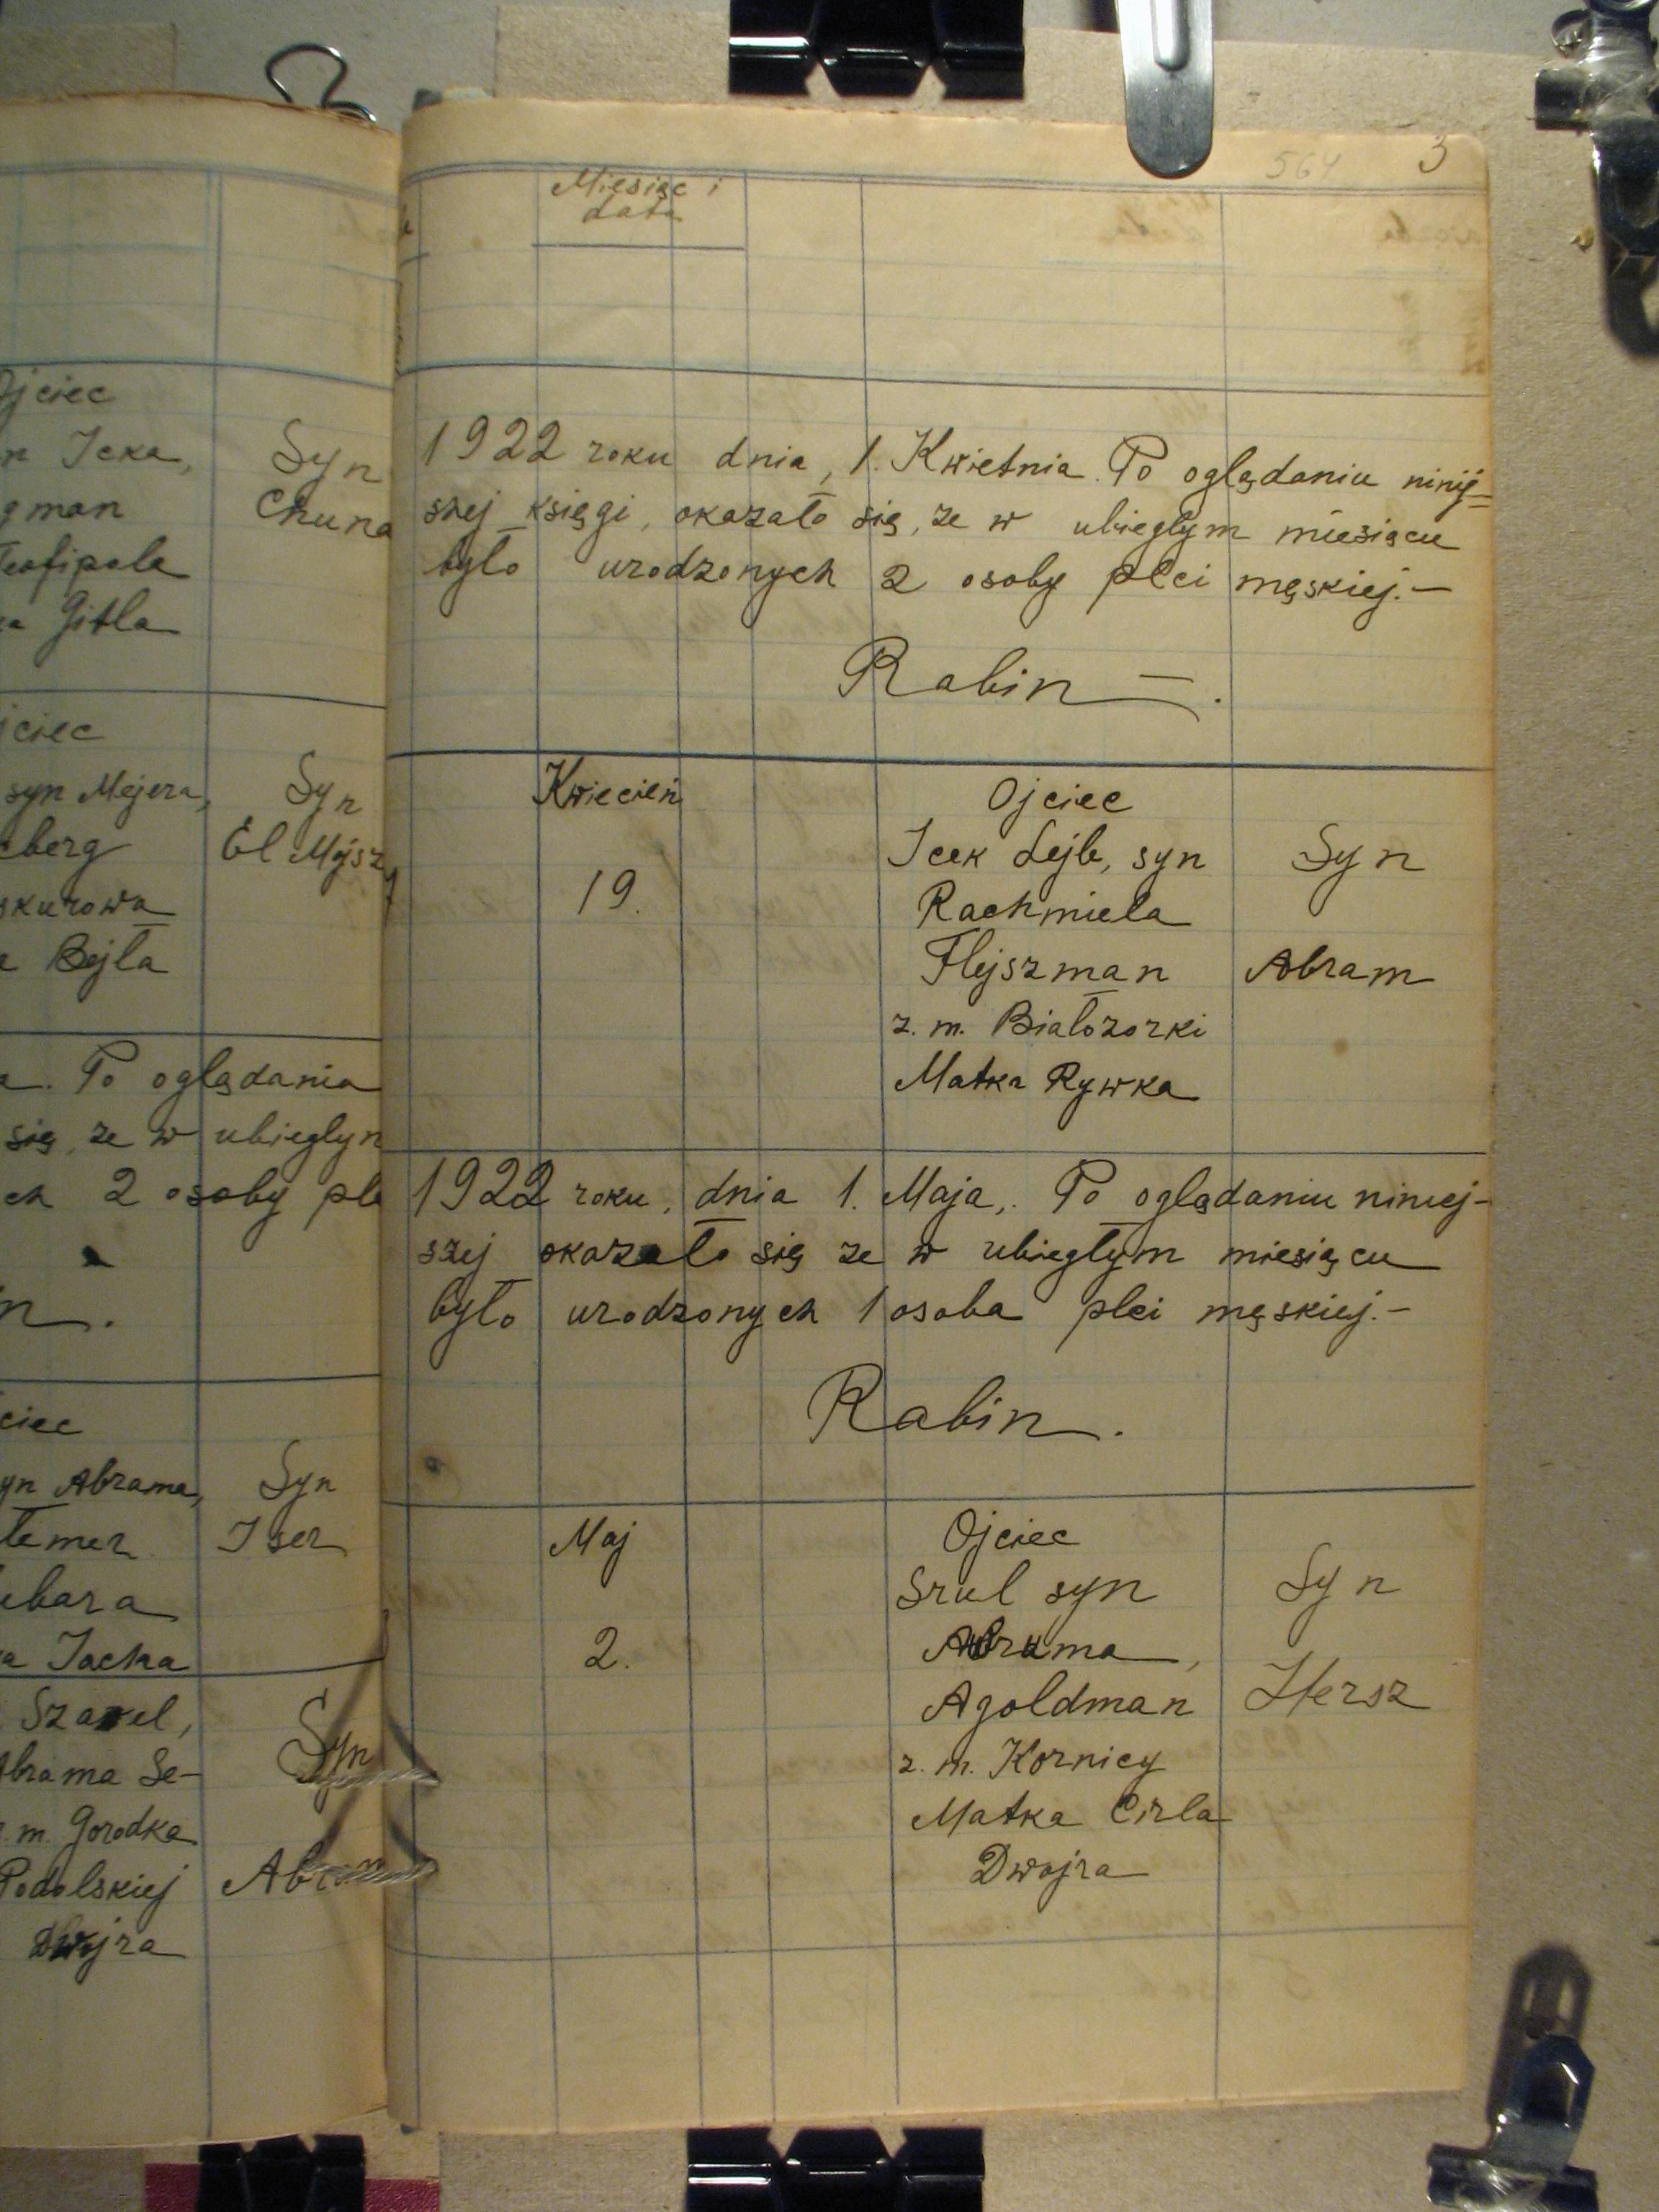 jciec
n Icka,
gman
Teofipola
a Gitla
Syn
Chuna
jciec
syn Mejera,
berg
skurowa
a Bejla
Syn
El Mojsz
a. Po oglądania
się, ze w ubiegłyn
ch 2 osoby płe
n.
ciec
yn Abrama,
temer
ubara
a Jacha
Syn
Iser
Szawel,
Abrama Se-
z. m. Gorodka
Podolskiej
Dwojra
Syn
Abram
564 3
Miesiąc i
data
1922 roku dnia, 1. Kwietnia. Po oglądaniu ninij=
szej księgi, okazało się, ze w ubiegłym miesiącu
było urodzonych 2 osoby płci męskiej.—
Rabin —.
Kwiecień
19.
Ojciec
Icek Lejb, syn
Rachmiela
Flejszman
z. m. Białozorki
Matka Rywka
Syn
Abram
1922 roku, dnia 1. Maja,. Po oglądaniu niniej-
szej okazało się ze w ubiegłym miesiącu
było urodzonych 1 osoba płci męskiej.-
Rabin.
Maj
2.
Ojciec
Srul syn
Abrama,
Agoldman
z. m. Kornicy
Matka Cirla
Dwojra
Syn
Hersz